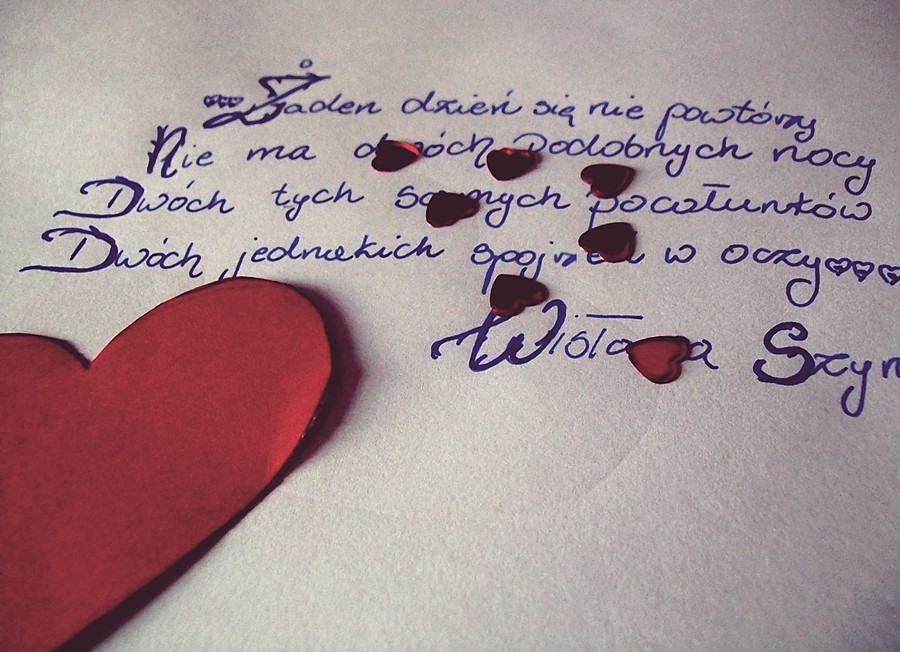 Żaden dzień się nie powtórzy
Nie ma dwóch Podobnych nocy
Dwóch tych samych pocałunków
Dwóch jednakich spojrzeń w oczy
Wisława